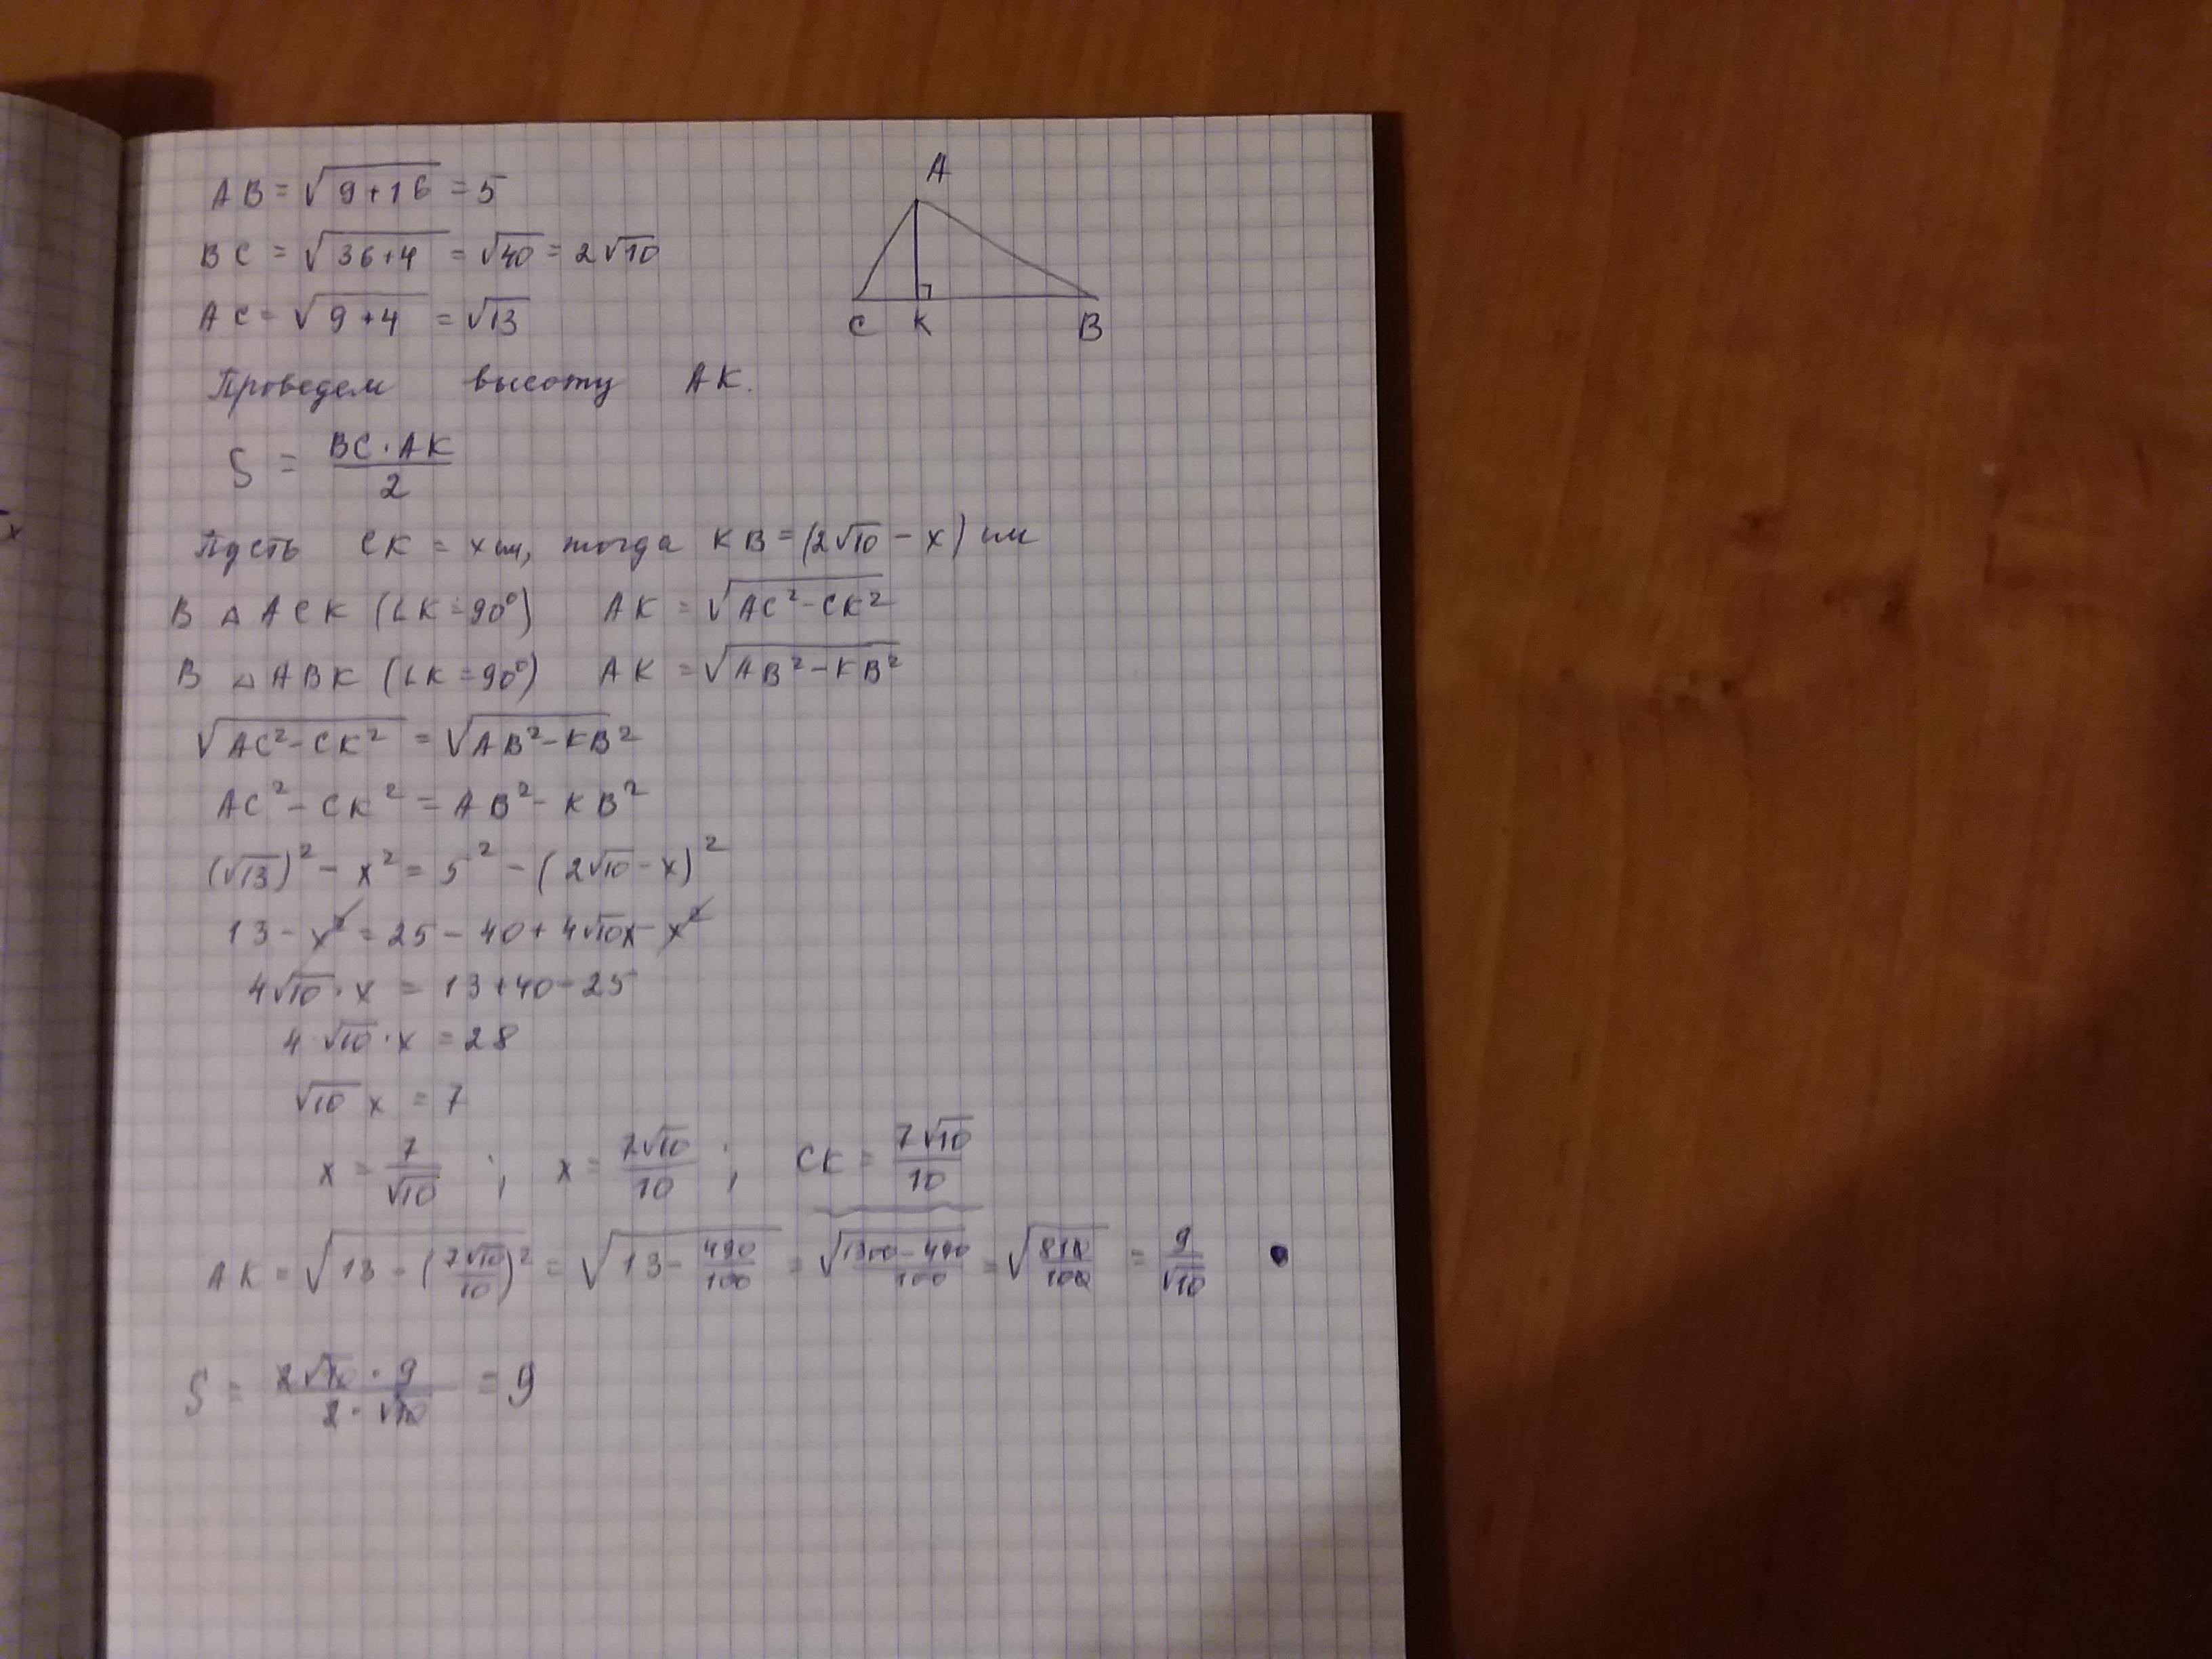 AB = √9+16 = 5
BC = √36+4 = √40 = 2√10
AC = √9+4 = √13
A
C K B
Проведем высоту AK.
S = BC·AK / 2
Пусть CK = x см, тогда KB = (2√10 - x) см
В △ ACK (∠K = 90°) AK = √AC² - CK²
В △ ABK (∠K = 90°) AK = √AB² - KB²
√AC² - CK² = √AB² - KB²
AC² - CK² = AB² - KB²
(√13)² - x² = 5² - (2√10 - x)²
13 - x² = 25 - 40 + 4√10x - x²
4√10 · x = 13 + 40 - 25
4√10 · x = 28
√10 x = 7
x = 7/√10 ; x = 7√10/10 ; CK = 7√10/10
AK = √13 - (7√10/10)² = √13 - 490/100 = √1300-490/100 = √810/100 = 9/√10
S = 2√10 · 9 / 2 · √10 = 9